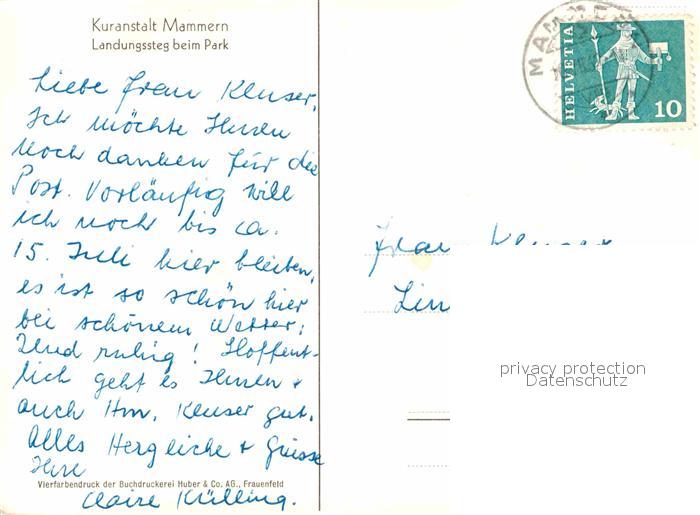 Kuranstalt Mammern
Landungssteg beim Park
Liebe Frau Kluser,
Ich möchte Ihnen
noch danken für die
Post. Vorläufig will
ich noch bis ca.
15. Juli hier bleiben,
es ist so schön hier
bei schönem Wetter;
Und ruhig! Hoffent-
lich geht es Ihnen +
auch Hrn. Kluser gut.
Alles Herzliche + Grüsse
Ihre
Vierfarbendruck der Buchdruckerei Huber & Co. AG., Frauenfeld
Claire Külling.
HELVETIA
10
Frau Kluser
privacy protection
Datenschutz